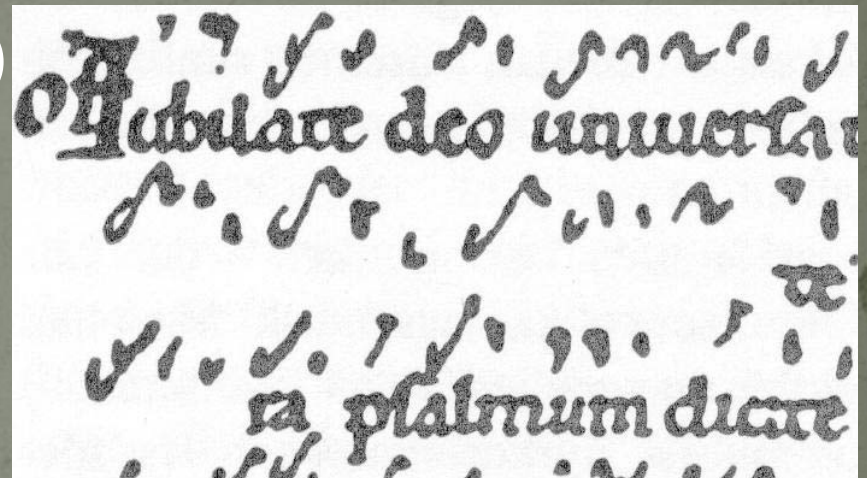 Of Iubilate deo uniuersa
te
ra psalmum dicite